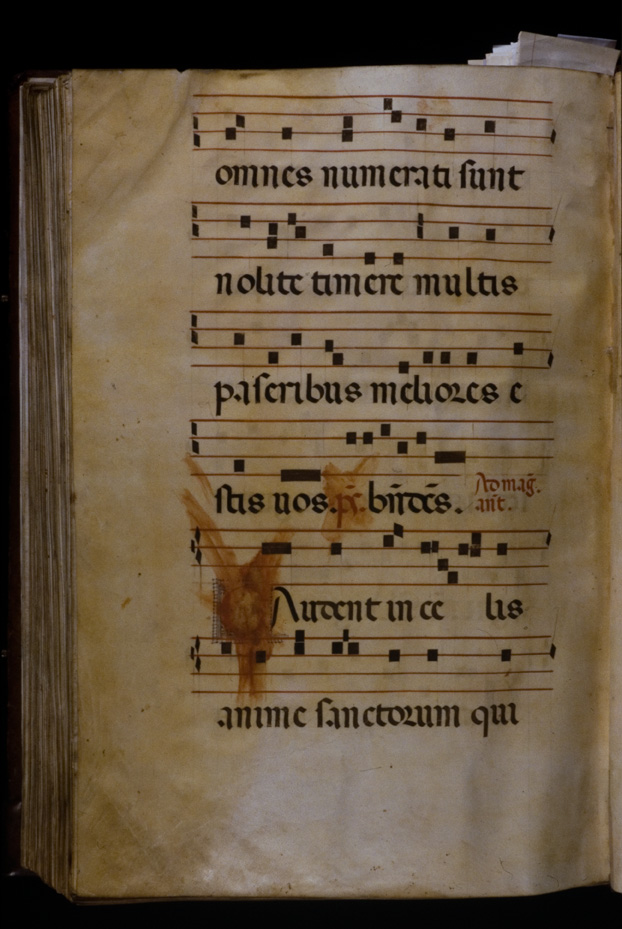 omnes numerati sunt
nolite timere multis
paseribus meliores e
stis uos. ps. bn̄dc̄s. Ad mag̃. ant̃.
Audent in ce lis
anime sanctorum qui